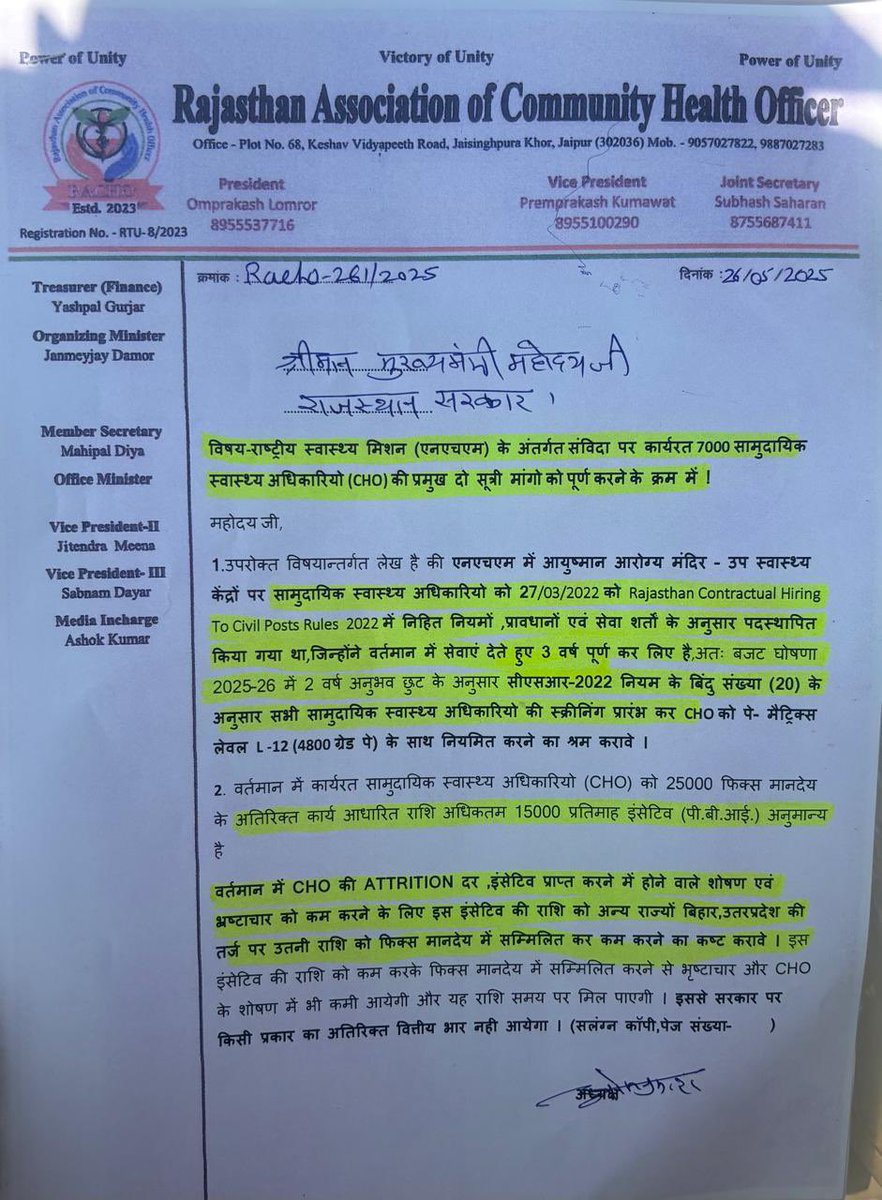 Power of Unity
Victory of Unity
Power of Unity
Rajasthan Association of Community Health Officer
Office - Plot No. 68, Keshav Vidyapeeth Road, Jaisinghpura Khor, Jaipur (302036) Mob. - 9057027822, 9887027283
Rajasthan Association of Community Health Officer
RACHO
Estd. 2023
Registration No. - RTU-8/2023
President
Omprakash Lomror
8955537716
Vice President
Premprakash Kumawat
8955100290
Joint Secretary
Subhash Saharan
8755687411
Treasurer (Finance)
Yashpal Gurjar
Organizing Minister
Janmeyjay Damor
Member Secretary
Mahipal Diya
Office Minister
Vice President-II
Jitendra Meena
Vice President- III
Sabnam Dayar
Media Incharge
Ashok Kumar
क्रमांक : Racho-261/2025
दिनांक :26/05/2025
श्रीमान मुख्यमंत्री महोदय जी
राजस्थान सरकार ।
विषय-राष्ट्रीय स्वास्थ्य मिशन (एनएचएम) के अंतर्गत संविदा पर कार्यरत 7000 सामुदायिक
स्वास्थ्य अधिकारियो (CHO) की प्रमुख दो सूत्री मांगो को पूर्ण करने के क्रम में !
महोदय जी,
1.उपरोक्त विषयान्तर्गत लेख है की एनएचएम में आयुष्मान आरोग्य मंदिर – उप स्वास्थ्य
केंद्रों पर सामुदायिक स्वास्थ्य अधिकारियो को 27/03/2022 को Rajasthan Contractual Hiring
To Civil Posts Rules 2022 में निहित नियमों ,प्रावधानों एवं सेवा शर्तो के अनुसार पदस्थापित
किया गया था,जिन्होंने वर्तमान में सेवाएं देते हुए 3 वर्ष पूर्ण कर लिए है,अतः बजट घोषणा
2025-26 में 2 वर्ष अनुभव छुट के अनुसार सीएसआर-2022 नियम के बिंदु संख्या (20) के
अनुसार सभी सामुदायिक स्वास्थ्य अधिकारियो की स्क्रीनिंग प्रारंभ कर CHO को पे- मैट्रिक्स
लेवल L -12 (4800 ग्रेड पे) के साथ नियमित करने का श्रम करावे ।
2. वर्तमान में कार्यरत सामुदायिक स्वास्थ्य अधिकारियो (CHO) को 25000 फिक्स मानदेय
के अतिरिक्त कार्य आधारित राशि अधिकतम 15000 प्रतिमाह इंसेटिव (पी.बी.आई.) अनुमान्य
है
वर्तमान में CHO की ATTRITION दर ,इंसेटिव प्राप्त करने में होने वाले शोषण एवं
भ्रष्टाचार को कम करने के लिए इस इंसेटिव की राशि को अन्य राज्यों बिहार,उतरप्रदेश की
तर्ज पर उतनी राशि को फिक्स मानदेय में सम्मिलित कर कम करने का कष्ट करावे । इस
इंसेटिव की राशि को कम करके फिक्स मानदेय में सम्मिलित करने से भृष्टाचार और CHO
के शोषण में भी कमी आयेगी और यह राशि समय पर मिल पाएगी । इससे सरकार पर
किसी प्रकार का अतिरिक्त वित्तीय भार नही आयेगा । (सलंग्न कॉपी,पेज संख्या- )
अध्यक्ष